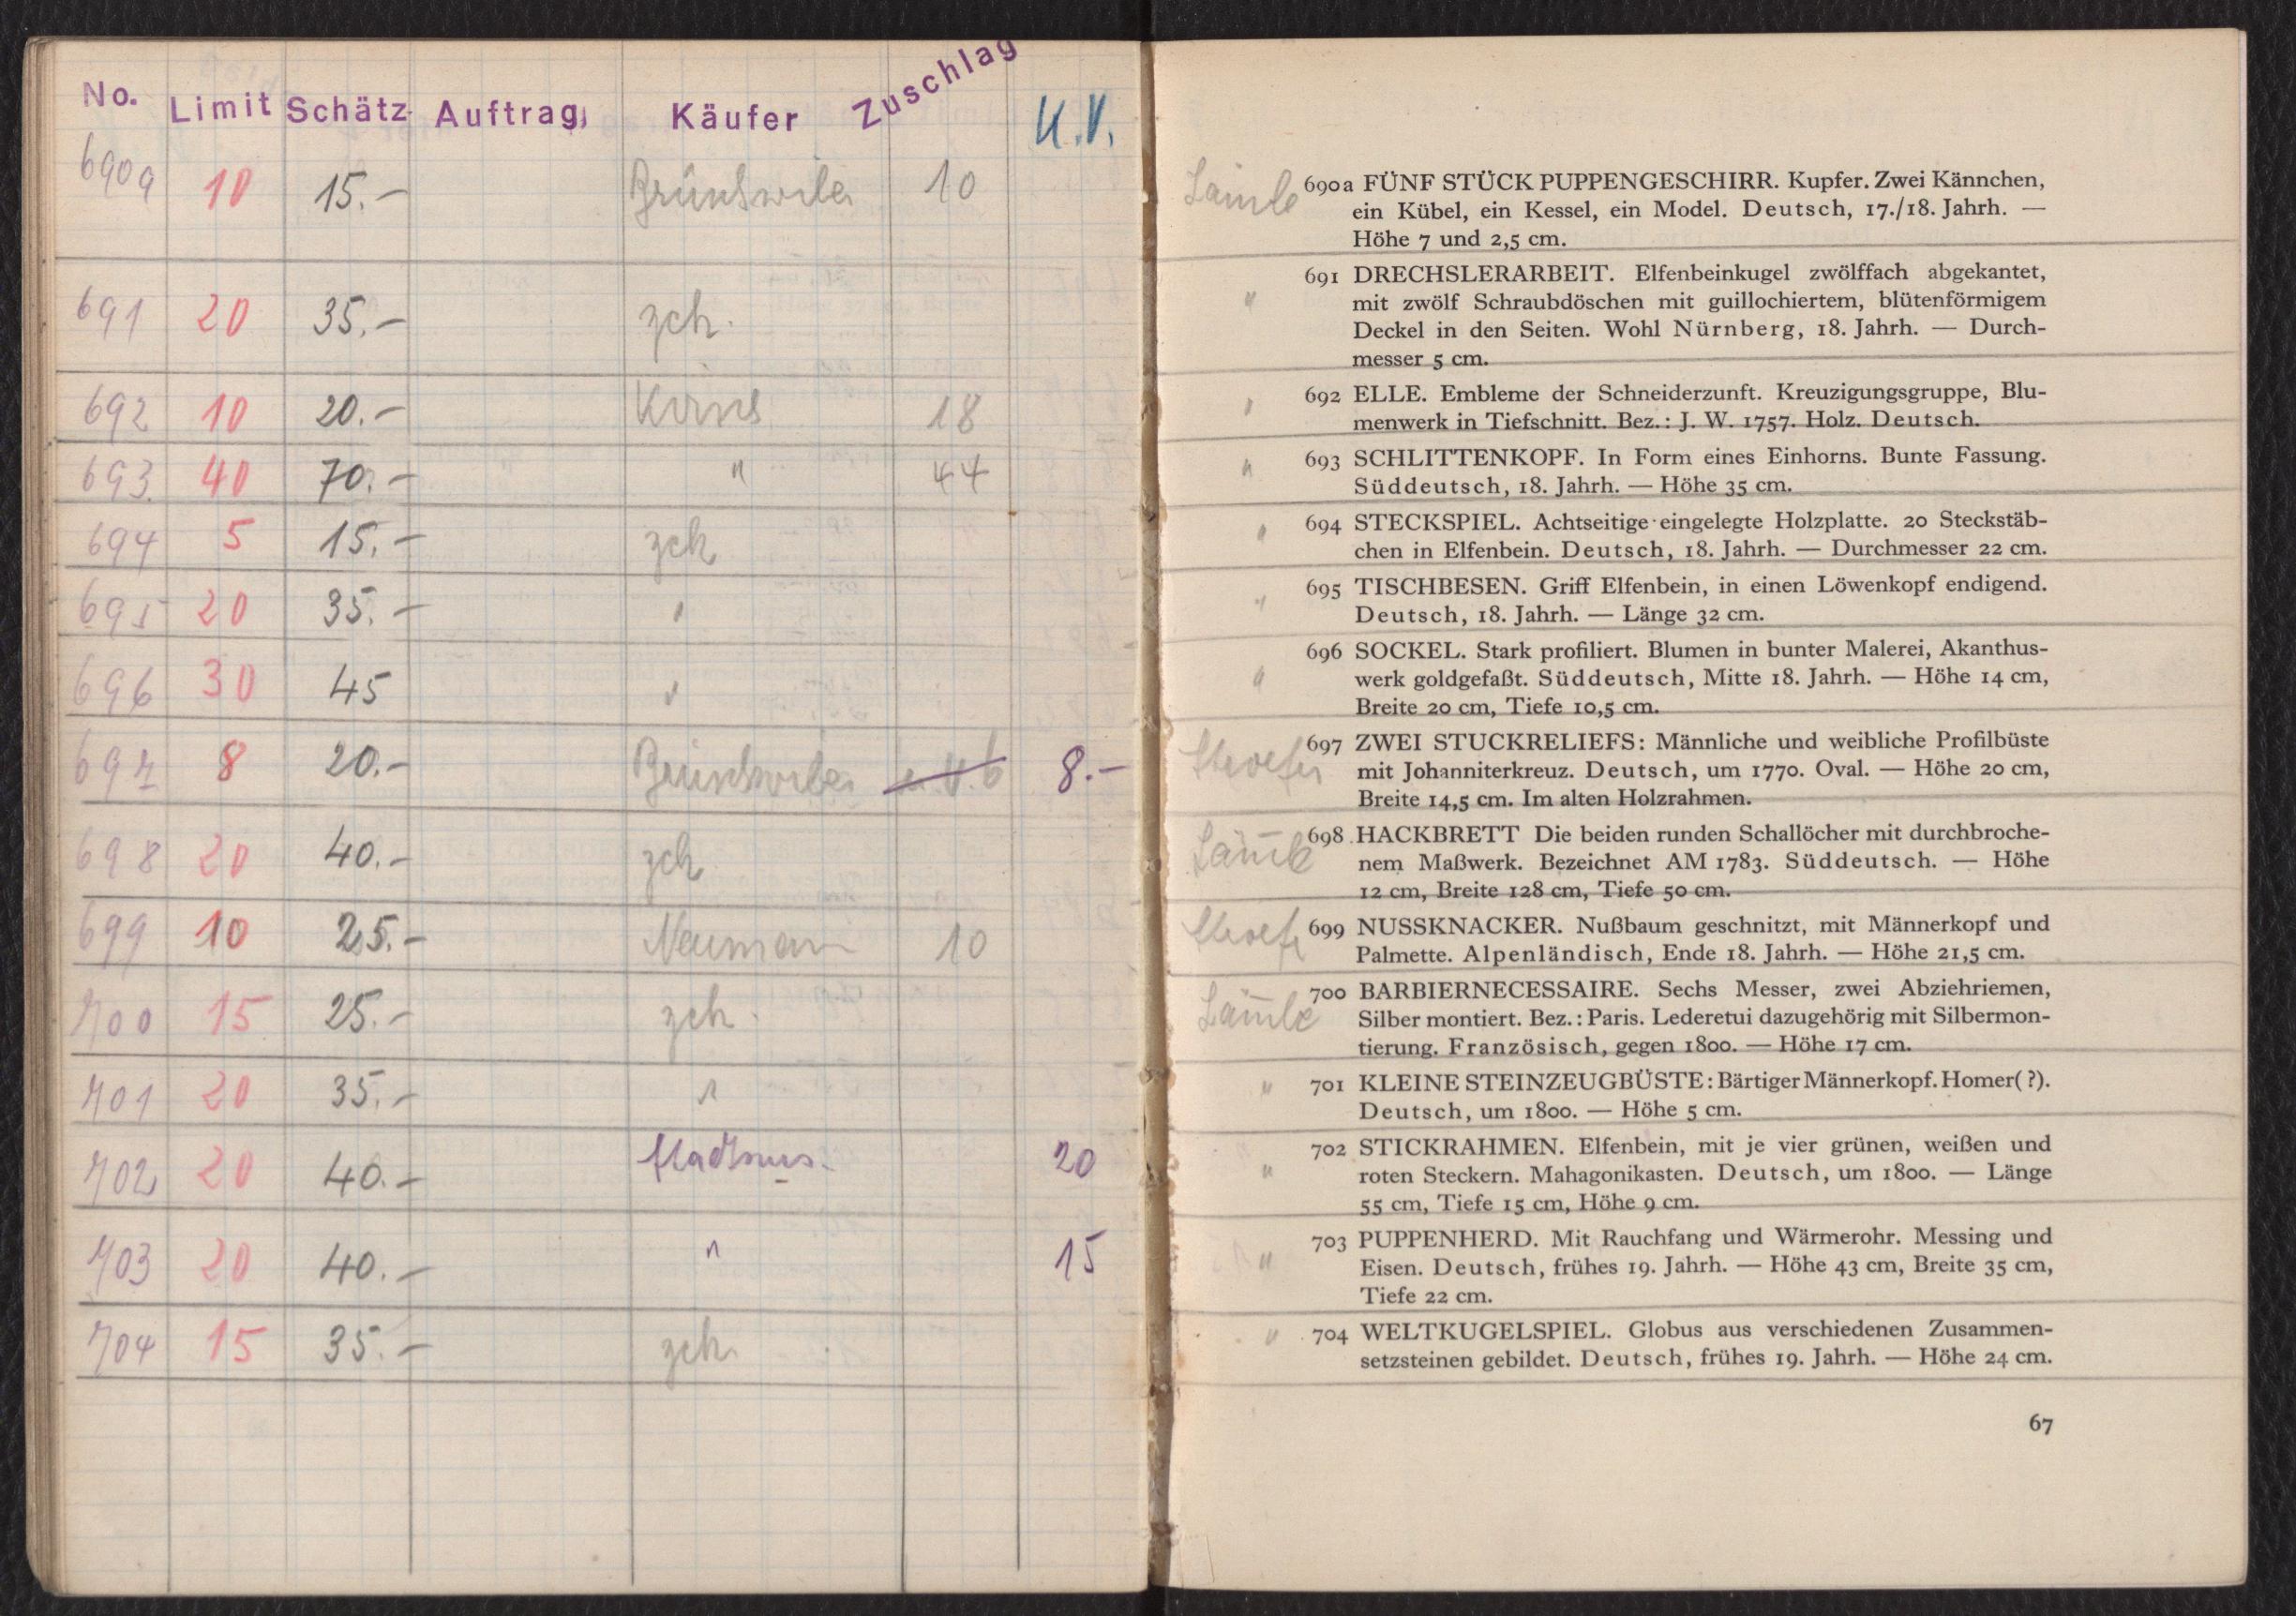 No. Limit Schätz- Auftrag Käufer Zuschlag K.V.
690a 10 15.- 10
691 20 35.- zch.
692 10 20.- 18
693. 40 70.- " 44
694 5 15.- zch
695 20 35.- "
696 30 45 "
697 8 20.- 8.-
698 20 40.- zch
699 10 25.- Neumann 10
700 15 25.- zch.
701 20 35.- "
702 20 40.- 20
703 20 40.- " 15
704 15 35.- zch.
690a FÜNF STÜCK PUPPENGESCHIRR. Kupfer. Zwei Kännchen,
ein Kübel, ein Kessel, ein Model. Deutsch, 17./18. Jahrh. —
Höhe 7 und 2,5 cm.
" 691 DRECHSLERARBEIT. Elfenbeinkugel zwölffach abgekantet,
mit zwölf Schraubdöschen mit guillochiertem, blütenförmigem
Deckel in den Seiten. Wohl Nürnberg, 18. Jahrh. — Durch-
messer 5 cm.
" 692 ELLE. Embleme der Schneiderzunft. Kreuzigungsgruppe, Blu-
menwerk in Tiefschnitt. Bez.: J. W. 1757. Holz. Deutsch.
" 693 SCHLITTENKOPF. In Form eines Einhorns. Bunte Fassung.
Süddeutsch, 18. Jahrh. — Höhe 35 cm.
" 694 STECKSPIEL. Achtseitige eingelegte Holzplatte. 20 Steckstäb-
chen in Elfenbein. Deutsch, 18. Jahrh. — Durchmesser 22 cm.
" 695 TISCHBESEN. Griff Elfenbein, in einen Löwenkopf endigend.
Deutsch, 18. Jahrh. — Länge 32 cm.
" 696 SOCKEL. Stark profiliert. Blumen in bunter Malerei, Akanthus-
werk goldgefaßt. Süddeutsch, Mitte 18. Jahrh. — Höhe 14 cm,
Breite 20 cm, Tiefe 10,5 cm.
697 ZWEI STUCKRELIEFS: Männliche und weibliche Profilbüste
mit Johanniterkreuz. Deutsch, um 1770. Oval. — Höhe 20 cm,
Breite 14,5 cm. Im alten Holzrahmen.
698 HACKBRETT Die beiden runden Schallöcher mit durchbroche-
nem Maßwerk. Bezeichnet AM 1783. Süddeutsch. — Höhe
12 cm, Breite 128 cm, Tiefe 50 cm.
699 NUSSKNACKER. Nußbaum geschnitzt, mit Männerkopf und
Palmette. Alpenländisch, Ende 18. Jahrh. — Höhe 21,5 cm.
700 BARBIERNECESSAIRE. Sechs Messer, zwei Abziehriemen,
Silber montiert. Bez.: Paris. Lederetui dazugehörig mit Silbermon-
tierung. Französisch, gegen 1800. — Höhe 17 cm.
" 701 KLEINE STEINZEUGBÜSTE: Bärtiger Männerkopf. Homer(?).
Deutsch, um 1800. — Höhe 5 cm.
" 702 STICKRAHMEN. Elfenbein, mit je vier grünen, weißen und
roten Steckern. Mahagonikasten. Deutsch, um 1800. — Länge
55 cm, Tiefe 15 cm, Höhe 9 cm.
" 703 PUPPENHERD. Mit Rauchfang und Wärmerohr. Messing und
Eisen. Deutsch, frühes 19. Jahrh. — Höhe 43 cm, Breite 35 cm,
Tiefe 22 cm.
" 704 WELTKUGELSPIEL. Globus aus verschiedenen Zusammen-
setzsteinen gebildet. Deutsch, frühes 19. Jahrh. — Höhe 24 cm.
67